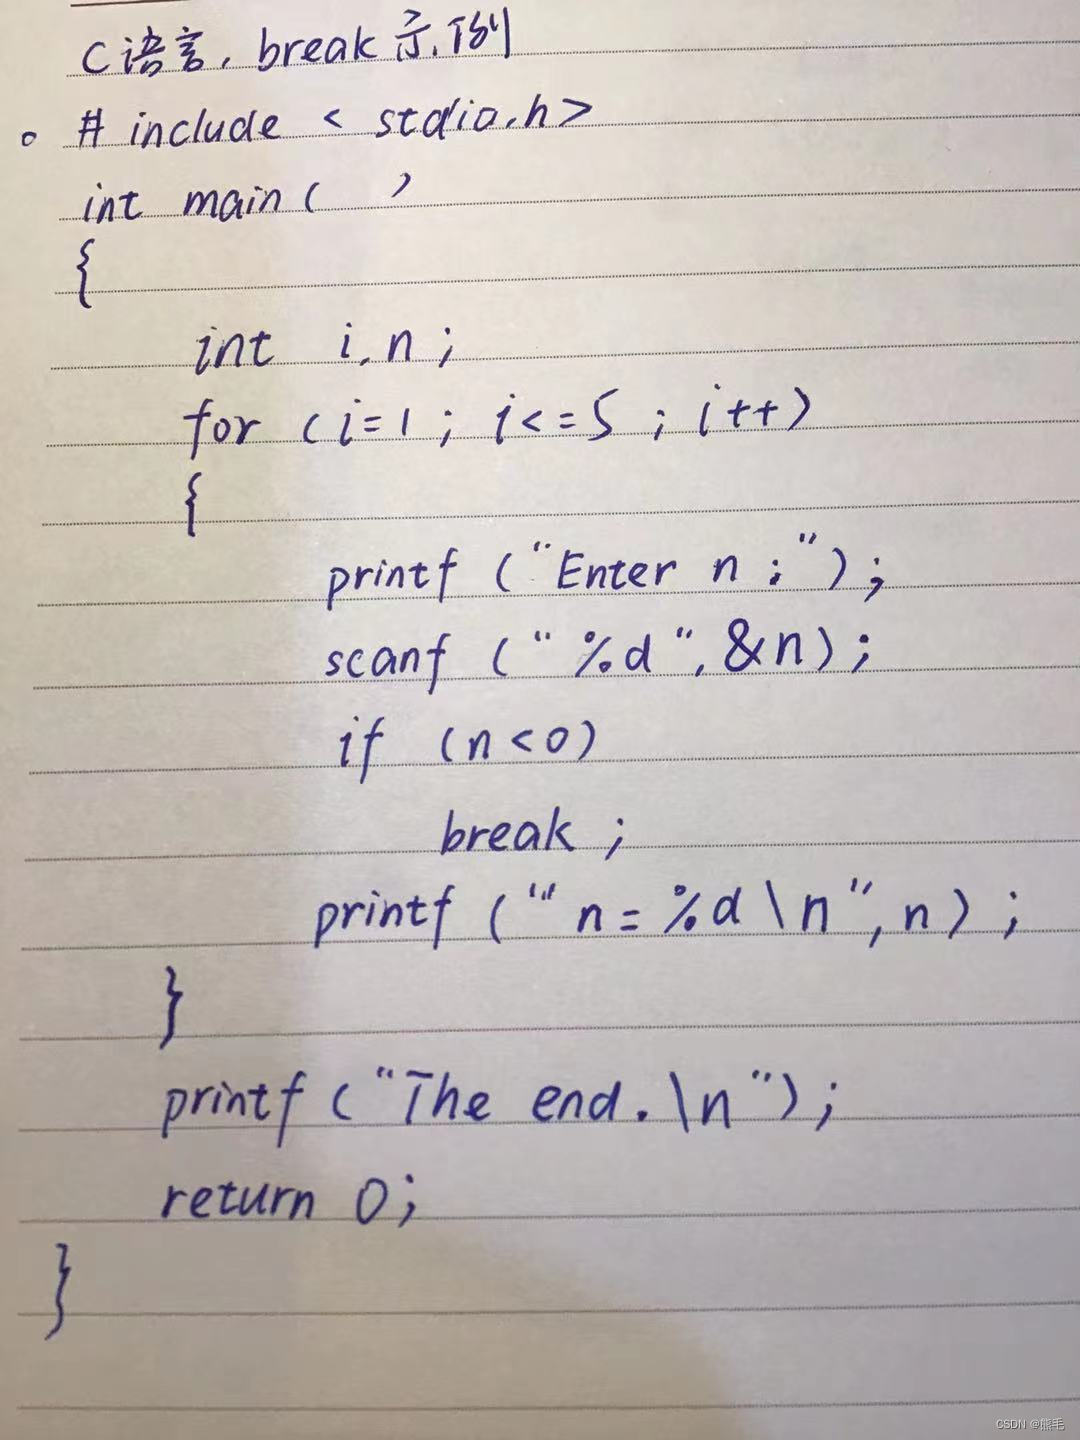 C语言，break示例
# include < stdio.h>
int main( )
{
int i,n;
for (i=1; i<=5; i++)
{
printf ("Enter n:");
scanf ("%d",&n);
if (n<0)
break;
printf ("n=%d\n",n);
}
printf ("The end.\n");
return 0;
}
CSDN @熊毛